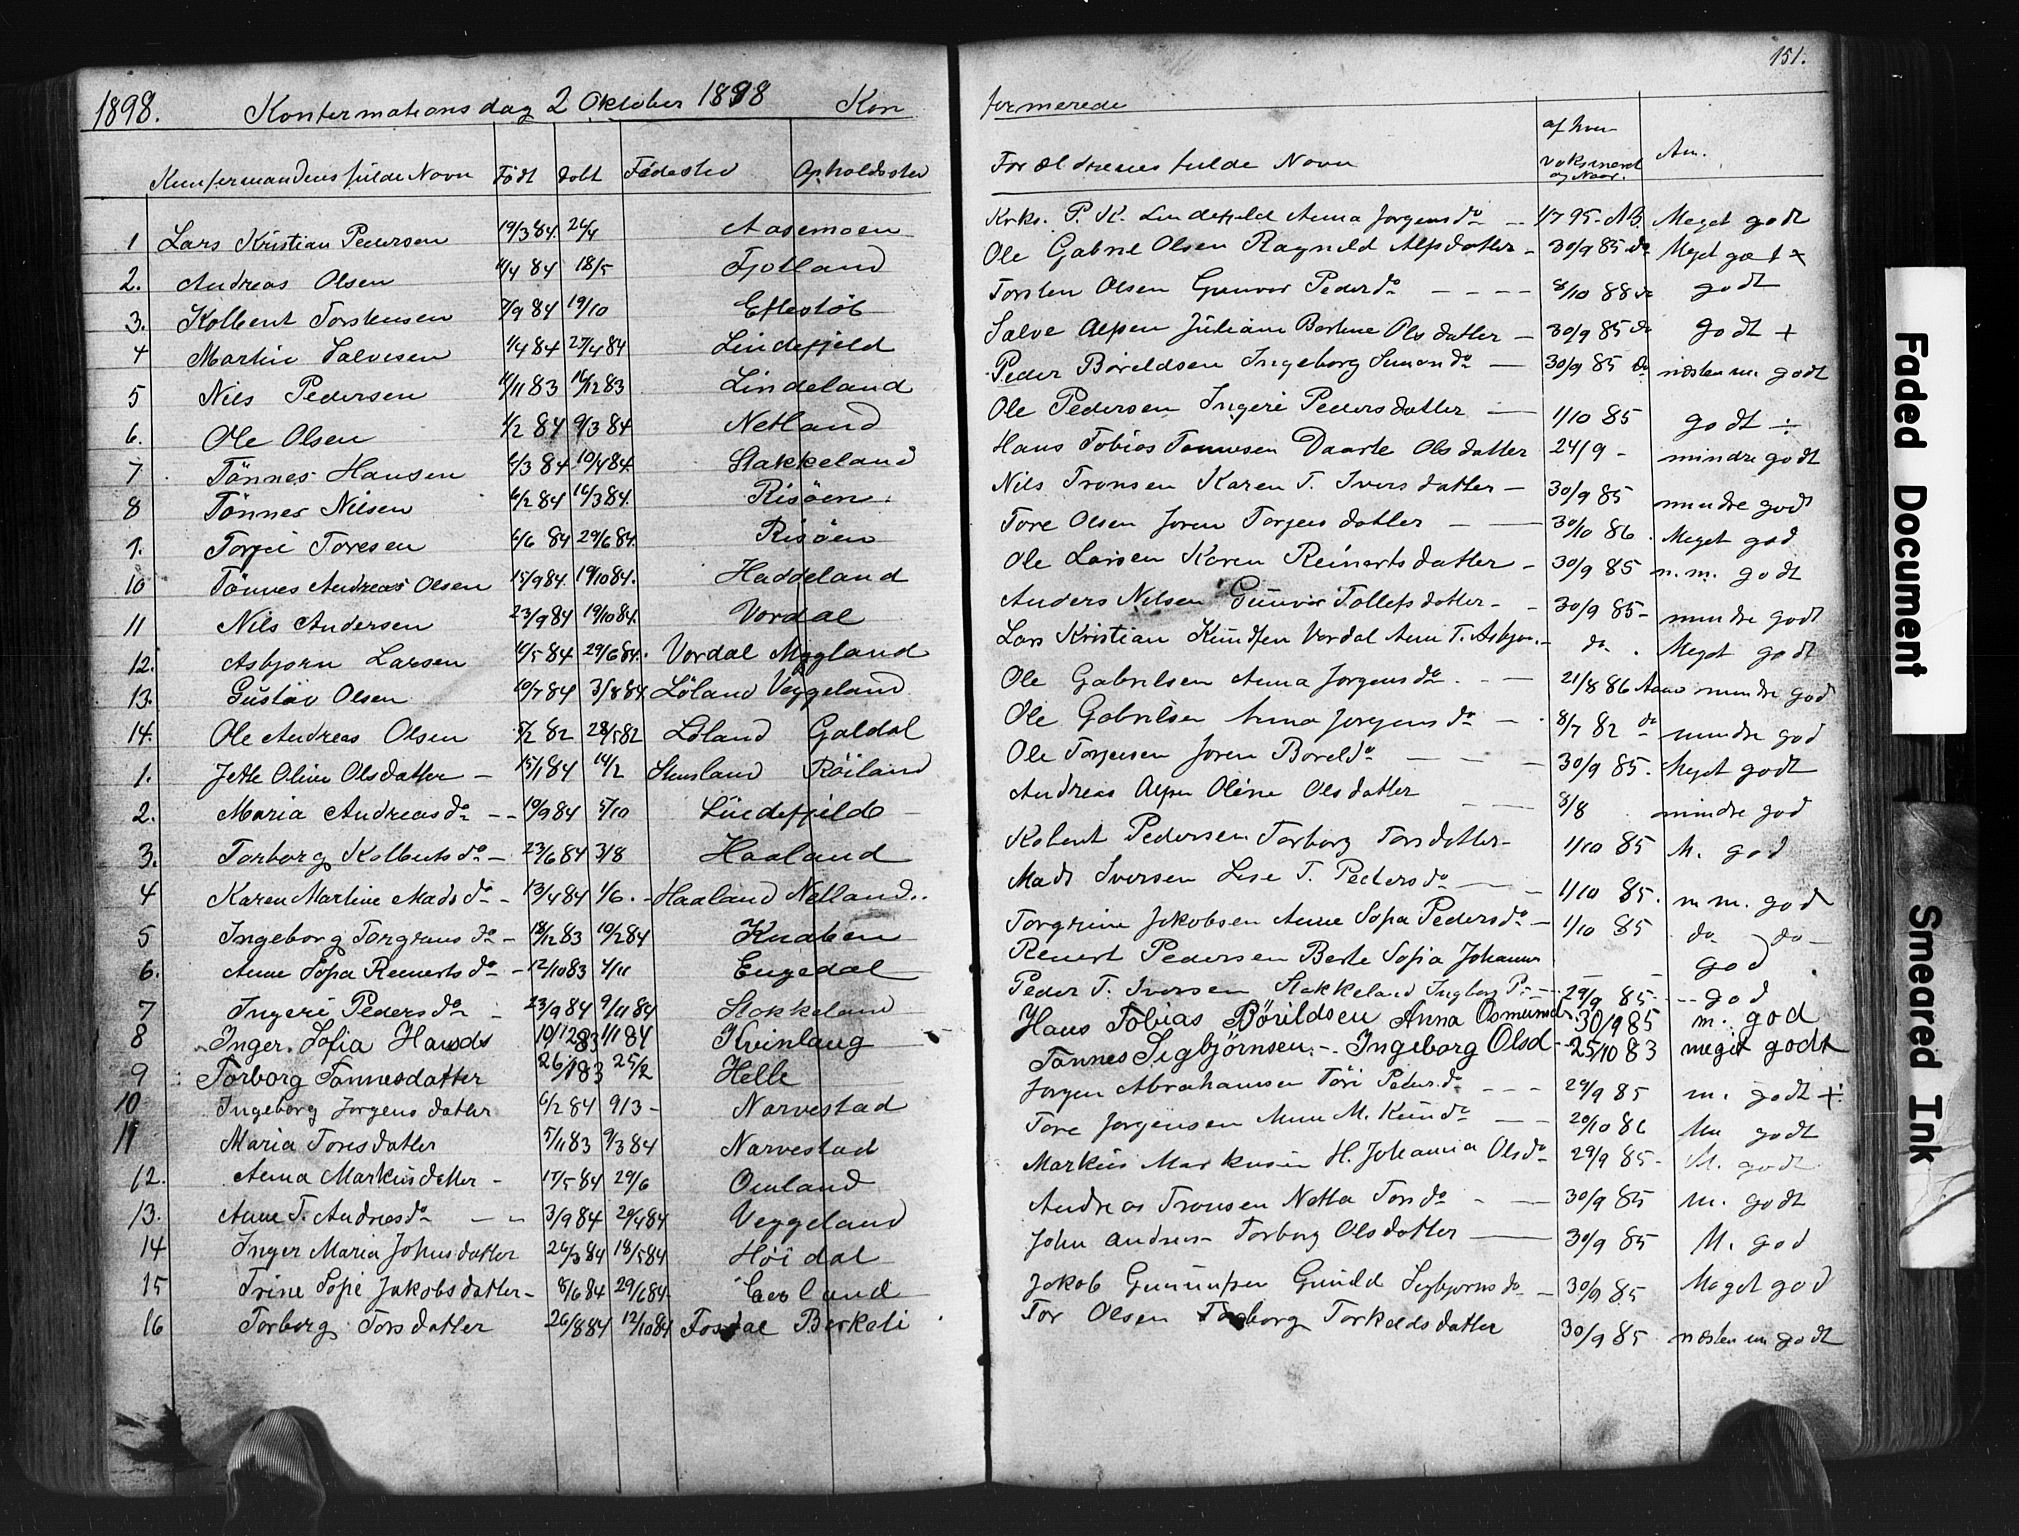 151.
1898. Konfermationsdag 2 Oktober 1898 Kon
fermerede
Konfermandens fulde Navn Födt döbt Födested Opholdssted
Forældrenes fulde Navn af hvem vaksineret og Naar. An.
1 Lars Kristian Pedersen 19/3 84. 26/4 Aasemoen
2. Andreas Olsen 11/4 84 18/5 Fjotland
3. Kolbent Torstensen 7/9 84 19/10 Eftestöl
4 Martin Salvesen 1/4 84 27/4 84 Lindefjeld
5 Nils Pedersen 11/11 83 16/12 83 Lindeland
6. Ole Olsen 1/2 84 9/3 84 Netland
7 Tönnes Hansen 6/3 84 10/4 84 Stakkeland
8 Tönnes Nilsen 6/2 84 16/3 84. Risöen
9. Torjei Toresen 6/6 84 29/6 84. Risöen
10 Tönnes Andreas Olsen 15/9 84. 19/10 84. Haddeland
11 Nils Andersen 23/9 84 19/10 84. Vordal
12. Asbjorn Larsen 11/5 84 29/6 84. Vordal Mygland
13. Gustav Olsen 10/7 84 3/8 84 Löland Veggeland
14. Ole Andreas Olsen 5/2 82 28/5 82 Löland Galdal
1. Jette Oline Olsdatter - 15/1 84 14/2 Stensland Röiland
2. Maria Andreasdo - - 10/9 84 5/10 Lindefjeld
3. Torborg Kolbentsdo - 23/6 84 3/8 Haaland
4 Karen Martine Madsdo - 13/4 84 1/6. - Haaland Netland..
5 Ingeborg Torgrimsdo - 18/12 83 10/2 84 Knaben
6. Anne Sofia Reinertsdo - 12/10 83 4/11 Engedal
7 Ingeri Pedersdo - 23/9 84 9/11 84 Stakkeland
8 Inger. Sofia Hansds 10/12 83 1/1 84 Kvinlaug
9 Torborg Tönnesdatter 26/1 83 25/2 Helle
10 Ingeborg Jorgensdatter 6/2 84 9/3 - Narvestad
11 Maria Toresdatter 5/11 83 9/3 84 Narvestad
12. Anna Markusdatter - 17/5 84 29/6 Omland
13. Anne T. Andresdo - - 3/9 84 Veggeland
14 Inger Maria Johnsdatter 26/3 84 18/5 84 Höidal
15 Trine Sofie Jakobsdatter - 8/6 84 29/6 84.
16 Torborg Torsdatter 26/8 84 12/10 84 Fosdal Berkeli
Kirks. P. K. Lindefjeld Anna Jorgensdo - - 1/7 95 - AB Meget godt
Ole Gabriel Olsen Ragnild Alfsdatter - 30/9 85 do Meget godt
Torsten Olsen Gunvor Pedersdo - - - - 8/10 88 do godt
Salve Alfsen Juliane Bertine Olsdatter - 30/9 85 do godt +
Peder Böreldsen Ingeborg Simondo - 30/9 85 do næsten m. godt
Ole Pedersen Ingeri Pedersdatter - 1/10 85 godt ÷
Hans Tobias Tönnesen Daarte Olsdatter 24/9 - mindre godt
Nils Tronsen Karen T. Iversdatter - 30/9 85 mindre godt
Tore Olsen Joren Torjeisdatter - - 30/10 86. Meget god
Ole Larsen Karen Reinertsdatter - 30/9 85 m.m. godt
Anders Nilsen Gunvor Tollefsdatter - - 30/9 85 - mindre godt
Lars Kristian Knudsen Vordal Anne T. Asbjor. - do. Meget godt
Ole Gabrilsen Anna Jorgensdo. - - 21/8 86 Aano mindre god
Ole Gabrilsen Anna Jorgensdo - . 8/7 82 do mindre god
Ole Torjeisen Joren Boreldo - - - 30/9 85. Meget godt
Andreas Alfsen Oline Olsdatter - - 8/8 mindre god
Kolbent Pedersen Torborg Torsdatter - 1/10 85 M. god
Mads Iversen Lise T. Pedersdo - - 1/10 85. m m. god
Torgrim Jakobsen Anne Sofia Pedersdo - 1/10 85 do do -
Reinert Pedersen Berte Sofia Johannes - - god
Peder T. Iversen Stakkeland Ingborg P. - 29/9 85 - - - god
Hans Tobias Börildsen Anna Osmundsd. 30/9 85 m. god
Tönnes Sigbjörnsen. - Ingeborg Olsd - 25/10 83 meget godt
Jorgen Abrahamsen Töri Pedersdo - - - 29/9 85 m. godt +
Tore Jorgensen Anne M. Knudo - - 20/10 86 Mm godt
Markus Markusen H. Johanna Olsdo - 29/9 85 - M. godt
Andreas Tronsen Netta Torsdo - - 30/9 85 m. godt
John Andreas Torborg Olsdatter - 30/9 85 M. god
Jakob Gunufsen Gunild Sigbjornsdo - 30/9 85 Meget god
Tor Olsen Torborg Torkeldsdatter 30/9 85 næsten m godt
Faded Document
Smeared Ink